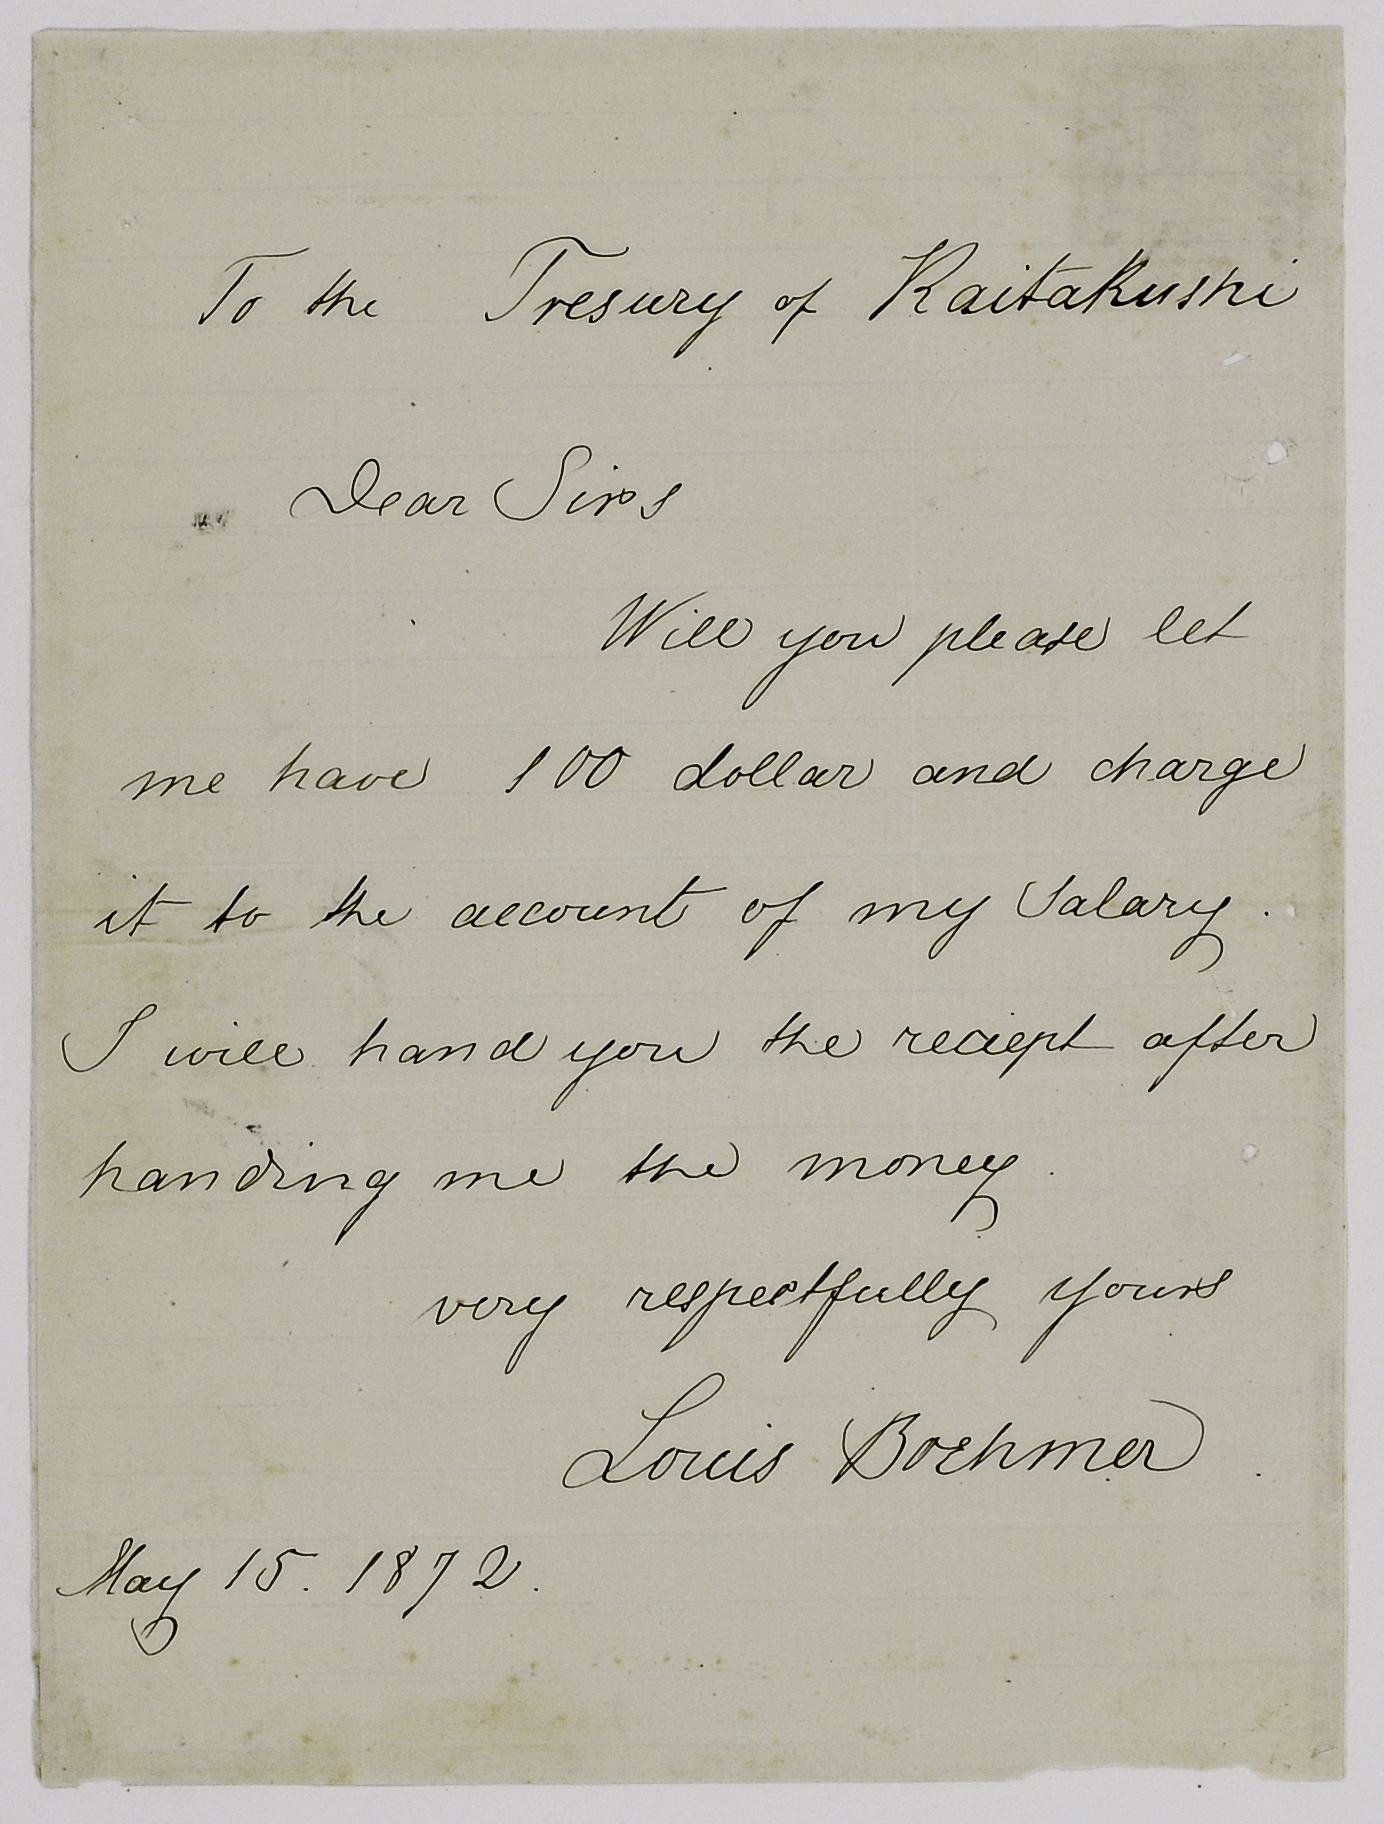 To the Tresury of Kaitakushi
Dear Sirs
Will you please let
me have 100 dollar and charge
it to the account of my Salary.
I will hand you the reciept after
handing me the money.
very respectfully yours
Louis Boehmer.
May 15. 1872.